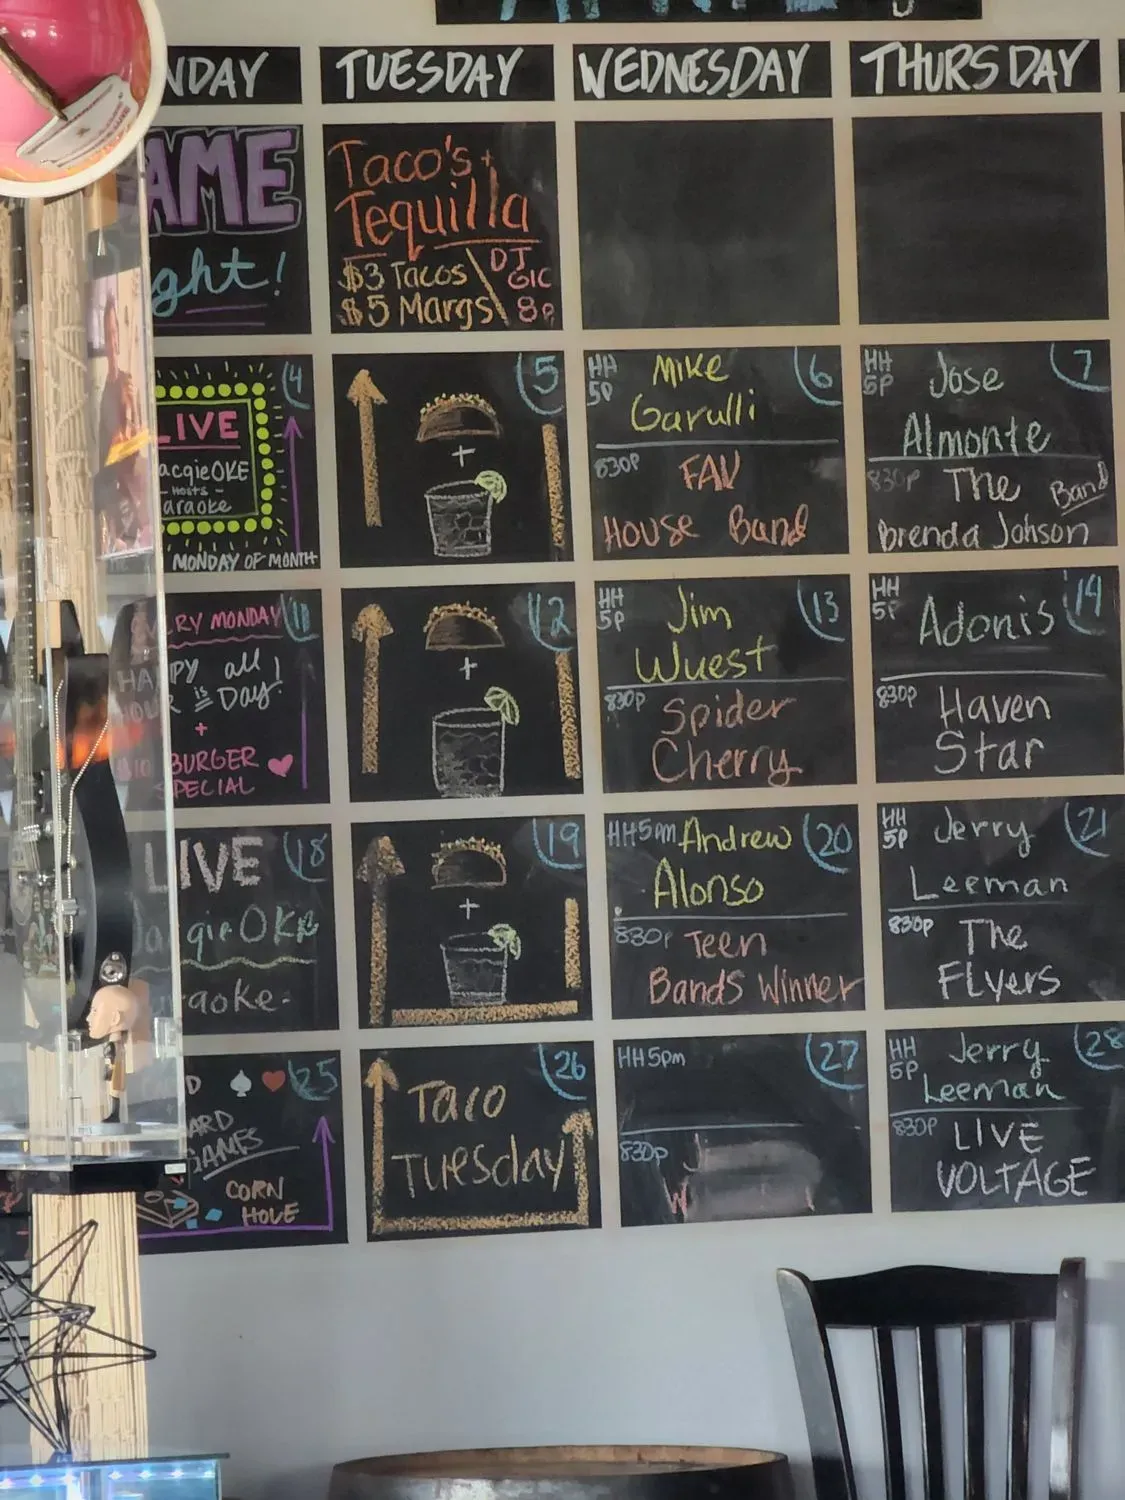 NDAY TUESDAY WEDNESDAY THURSDAY
AME
ght!
Taco's +
Tequilla
$3 Tacos
$5 Margs
DJ
GIC
8P
4
LIVE
acqieOKE
- HOSTS -
araoke
MONDAY OF MONTH
5
+
HH
5P
Mike
Garulli
6
830P
FAV
House Band
HH
5P
Jose
Almonte
7
830P
The Band
Brenda Johson
ERY MONDAY
11
HAPPY all
HOUR is Day!
+
$10 BURGER
SPECIAL
12
+
HH
5P
Jim
Wuest
13
830P
Spider
Cherry
HH
5P
Adonis
14
830P
Haven
Star
LIVE
18
qieOKE
raoke-
19
+
HH5pm Andrew
Alonso
20
830P
Teen
Bands Winner
HH
5P
Jerry
Leeman
21
830P
The
Flyers
25
ARD
GAMES
CORN
HOLE
26
Taco
Tuesday
HH5pm
27
830P
HH
5P
Jerry
Leeman
28
830P
LIVE
VOLTAGE